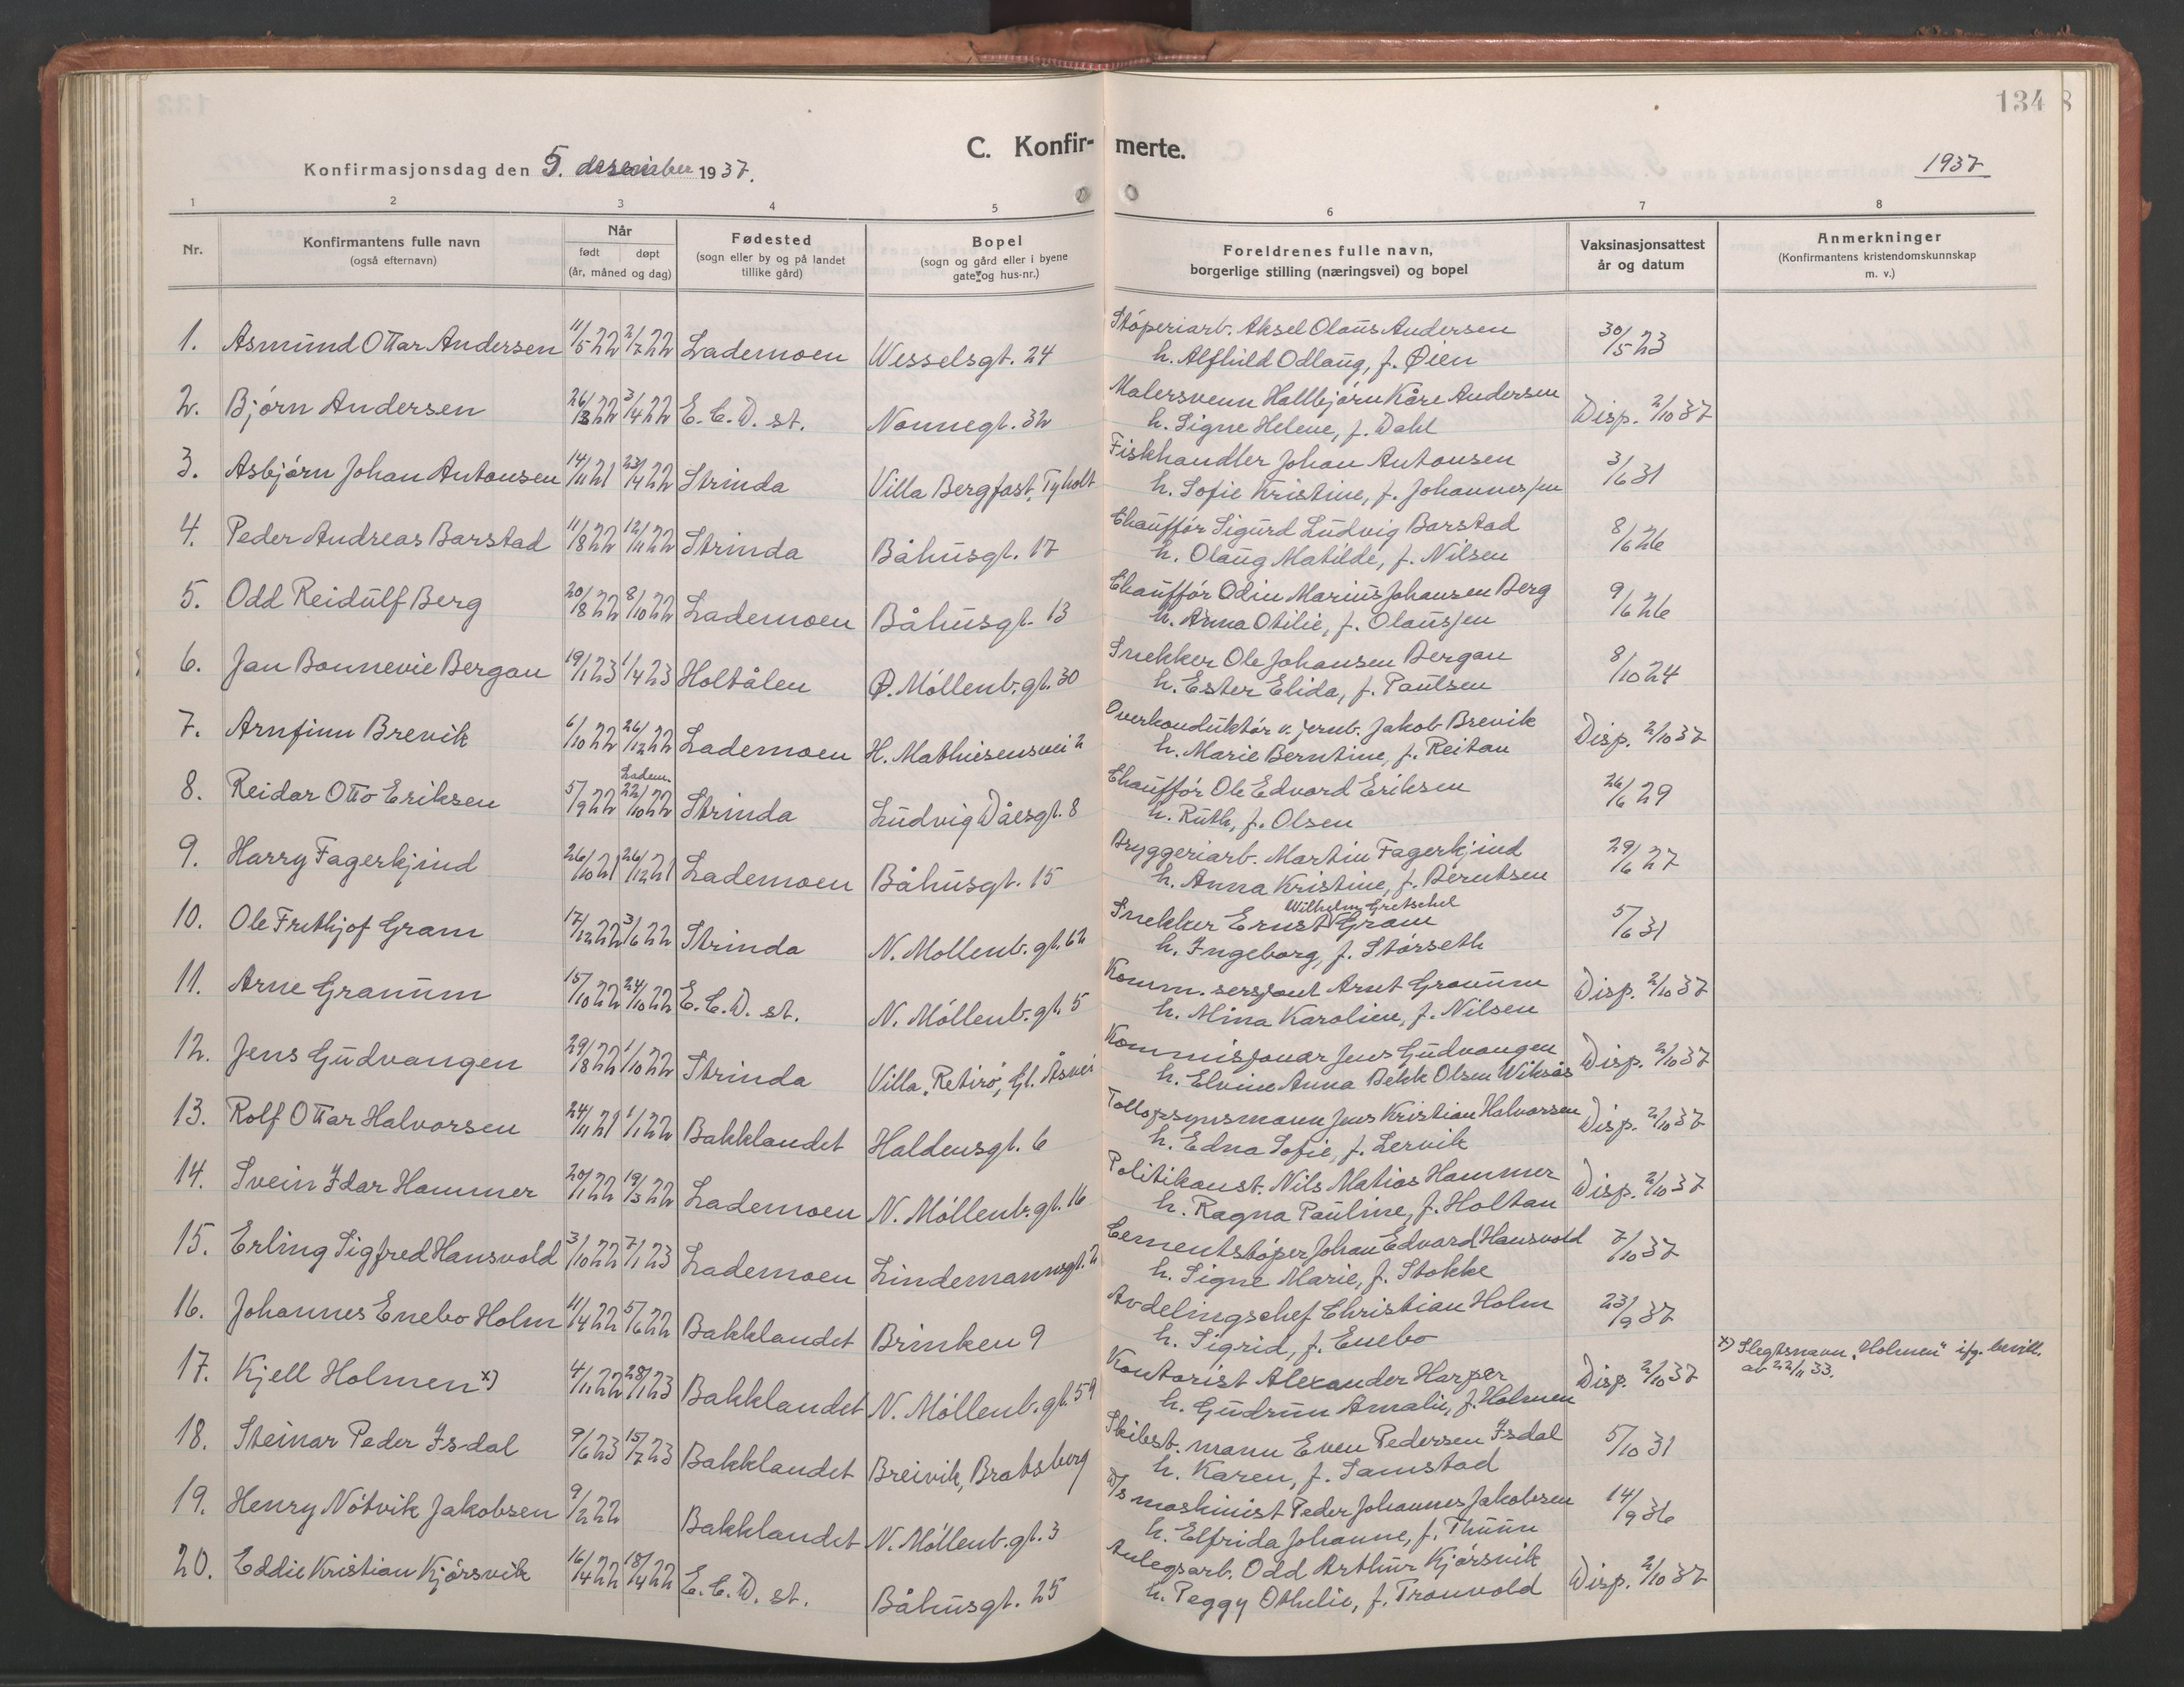 134
8
C. Konfir- merte.
Konfirmasjonsdag den 5. desember 1937.
1937
1 2 3 4 5 6 7 8
Nr.
Konfirmantens fulle navn
(også efternavn)
Når
født døpt
(år, måned og dag)
Fødested
(sogn eller by og på landet
tillike gård)
Bopel
(sogn og gård eller i byene
gate og hus-nr.)
Foreldrenes fulle navn,
borgerlige stilling (næringsvei) og bopel
Vaksinasjonsattest
år og datum
Anmerkninger
(Konfirmantens kristendomskunnskap
m. v.)
1. Asmund Ottar Andersen 11/5 22 2/7 22 Lademoen Wesselsgt. 24 Støperiarb. Aksel Olaus Andersen 30/5 23
h. Alfhild Odlaug, f. Øien
2. Bjørn Andersen 26/3 22 3/4 22 E.C.D. st. Nonnegt. 32 Malersvenn Hallbjørn Kåre Andersen Disp. 2/10 37
h. Signe Helene, f. Dahl
3. Asbjørn Johan Antonsen 14/11 21 23/4 22 Strinda Villa Bergfast, Tyholt Fiskhandler Johan Antonsen 3/6 31
h. Sofie Kristine, f. Johannessen
4. Peder Andreas Barstad 11/8 22 12/11 22 Strinda Båhusgt. 17 Chauffør Sigurd Ludvig Barstad 8/6 26
h. Olaug Matilde, f. Nilsen
5. Odd Reidulf Berg 20/8 22 8/10 22 Lademoen Båhusgt. 13 Chauffør Odin Marius Johansen Berg 9/6 26
h. Anna Otilie, f. Olaussen
6. Jan Bonnevie Bergan 19/1 23 1/4 23 Holtålen Ø. Møllenb.gt. 30 Snekker Ole Johansen Bergan 8/10 24
h. Ester Elida, f. Paulsen
7. Arnfinn Brevik 6/10 22 26/12 22 Lademoen H. Mathiesensvei 2 Overkonduktør v. jernb. Jakob Brevik Disp. 2/10 37
h. Marie Berntine, f. Reitan
8. Reidar Otto Eriksen 5/9 22 Ladem. 22/10 22 Strinda Ludvig Dåesgt. 8 Chauffør Ole Edvard Eriksen 26/6 29
h. Ruth, f. Olsen
9. Harry Fagerkjind 26/10 21 26/12 21 Lademoen Båhusgt. 15 Bryggeriarb. Martin Fagerkjind 29/6 27
h. Anna Kristine, f. Berntsen
10. Ole Frithjof Gram 17/12 22 3/6 22 Strinda N. Møllenb.gt. 62 Snekker Ernst Wilhelm Gretschel Gram 5/6 31
h. Ingeborg, f. Størseth
11. Arne Granum 15/10 22 24/10 22 E.C.D. st. N. Møllenb.gt. 5 Komm. sersjant Arnt Graunum Disp. 2/10 37
h. Alina Karoline, f. Nilsen
12. Jens Gudvangen 29/8 22 1/10 22 Strinda Villa "Retiro", Gl. Åsvei Kommisjonær Jens Gudvangen Disp. 2/10 37
h. Elvine Anna Bekk Olsen Wiksås
13. Rolf Ottar Halvorsen 24/11 21 1/1 22 Bakklandet Haldensgt. 6 Tollopsynsmann Jens Kristian Halvorsen Disp. 2/10 37
h. Edna Sofie, f. Lervik
14. Svein Idar Hammer 20/1 22 19/3 22 Lademoen N. Møllenb.gt. 16 Politikonst. Nils Matias Hammer Disp. 2/10 37
h. Ragna Pauline, f. Holtan
15. Erling Sigfred Hansvold 3/10 22 7/1 23 Lademoen Lindemannsgt. 2 Cementstøper Johan Edvard Hansvold 7/10 37
h. Signe Marie, f. Stokke
16. Johannes Enebo Holm 11/4 22 5/6 22 Bakklandet Brinken 9 Avdelingschef Christian Holm 23/9 37
h. Sigrid, f. Enebo
17. Kjell Holmen x) 4/11 22 28/1 23 Bakklandet N. Møllenb.gt. 59 Kontorist Alexander Harper Disp. 2/10 37 x) Slegtsnavn "Holmen" ifg. bevill.
h. Gudrun Amalie, f. Holmen av 22/11 33.
18. Steinar Peder Isdal 9/6 23 15/7 23 Bakklandet Breivik, Bratsberg Skibst. mann Even Pedersen Isdal 5/10 31
h. Karen, f. Samstad
19. Henry Nøtvik Jakobsen 9/2 22 Bakklandet N. Møllenb.gt. 3 D/s maskinist Peder Johannes Jakobsen 14/9 36
h. Elfrida Johanne, f. Thuun
20. Eddie Kristian Kjørsvik 16/4 22 18/4 22 E.C.D. st. Båhusgt. 25 Anlegsarb. Odd Arthur Kjørsvik Disp. 2/10 37
h. Peggy Othelie, f. Tronvold